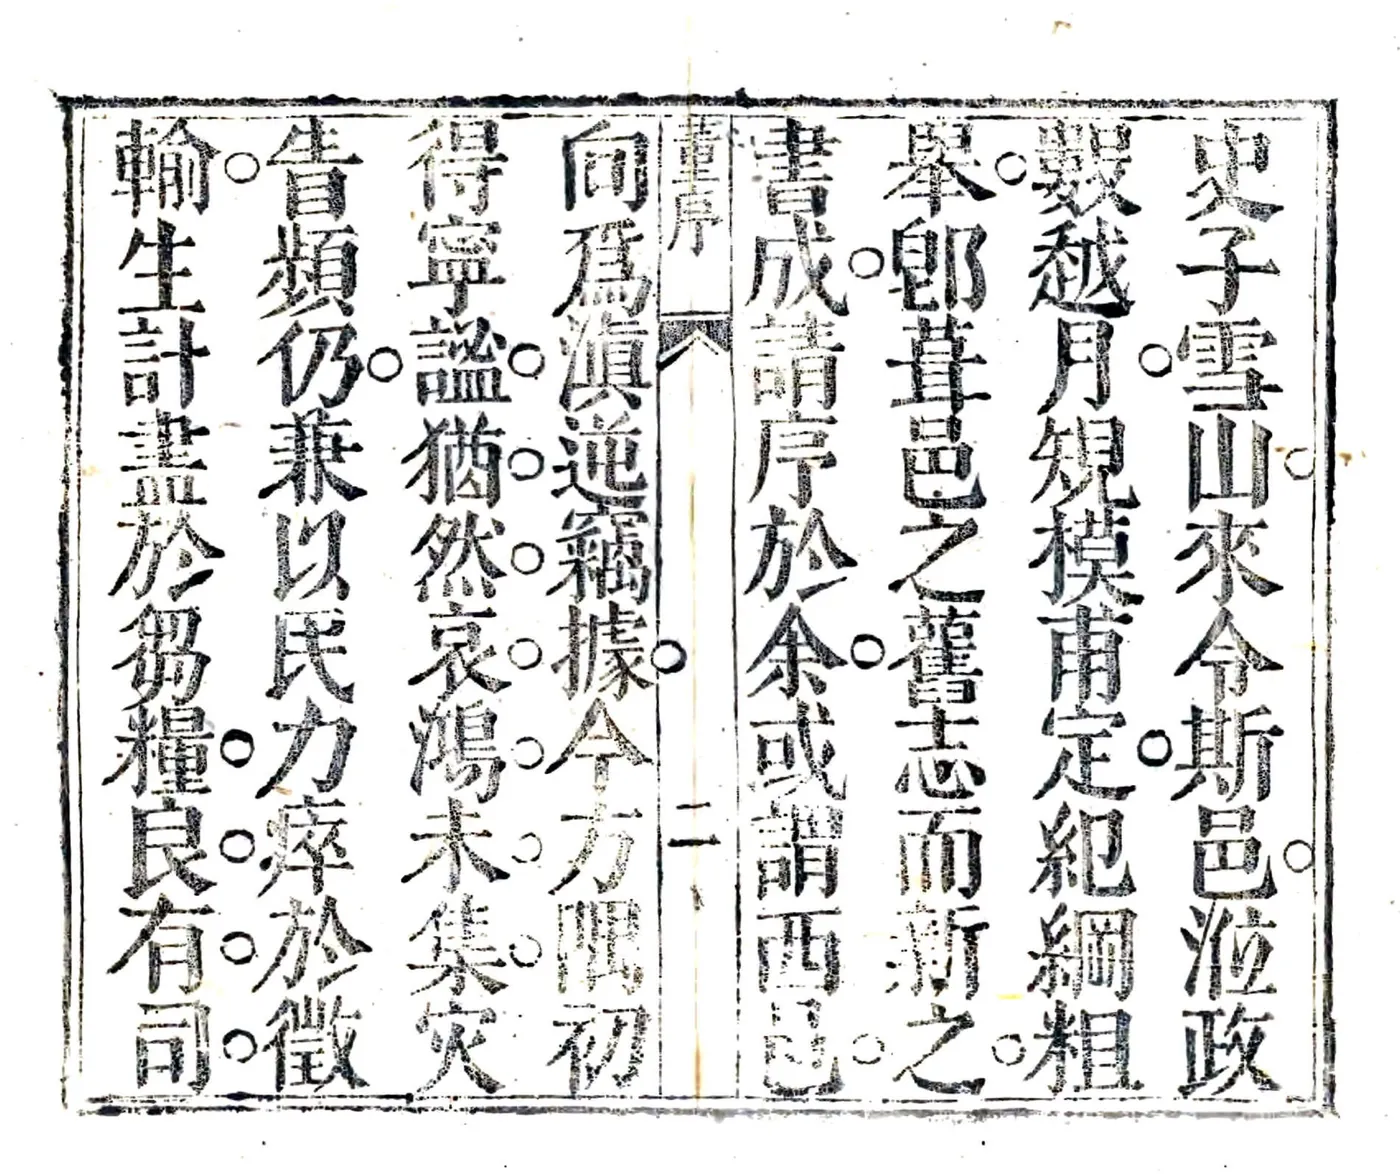 史子雪山來令斯邑涖政
數越月規模甫定紀綱粗
舉卽葺邑之舊志而新之
書成請序於余或謂西邑
董序
二
向爲滇逆竊據今方隅初
得寧謐猶然哀鴻未集災
眚頻仍兼以民力瘁於徵
輸生計盡於芻糧良有司